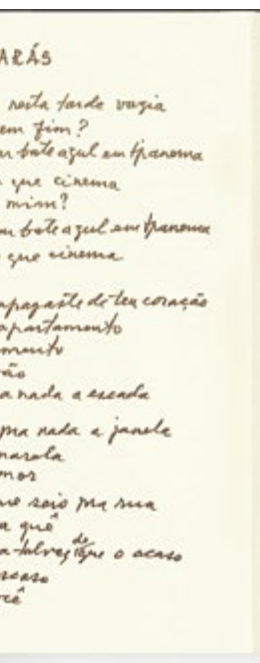 ARÁS
nesta tarde vazia
em fim?
bate azul em Ipanema
que cinema
mim?
bate azul em Ipanema
que cinema
apagaste de teu coração
apartamento
mento
ão
a nada a escada
pra nada a janela
marola
mos
saio pra rua
a quê
talvez de que o acaso
caso
cê